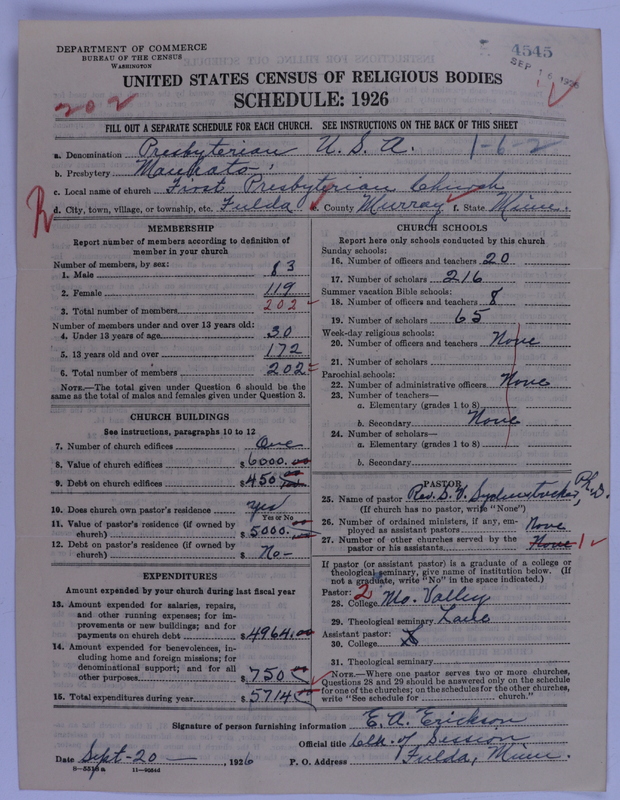 DEPARTMENT OF COMMERCE
BUREAU OF THE CENSUS
WASHINGTON
4545
SEP 16 1926
UNITED STATES CENSUS OF RELIGIOUS BODIES
SCHEDULE: 1926
202
FILL OUT A SEPARATE SCHEDULE FOR EACH CHURCH. SEE INSTRUCTIONS ON THE BACK OF THIS SHEET
a. Denomination Presbyterian U. S. A. 1-6-2
b. Presbytery Mankato
c. Local name of church First Presbyterian Church
d. City, town, village, or township, etc. Fulda e. County Murray f. State Minn.
MEMBERSHIP
Report number of members according to definition of member in your church
Number of members, by sex:
1. Male 83
2. Female 119
3. Total number of members 202
Number of members under and over 13 years old:
4. Under 13 years of age 30
5. 13 years old and over 172
6. Total number of members 202
NOTE.—The total given under Question 6 should be the same as the total of males and females given under Question 3.
CHURCH BUILDINGS
See instructions, paragraphs 10 to 12
7. Number of church edifices One
8. Value of church edifices $6000.00
9. Debt on church edifices $450
10. Does church own pastor's residence? yes
Yes or No
11. Value of pastor's residence (if owned by church) $5000.
12. Debt on pastor's residence (if owned by church) $ No-
EXPENDITURES
Amount expended by your church during last fiscal year
13. Amount expended for salaries, repairs, and other running expenses; for improvements or new buildings; and for payments on church debt $4964.00
14. Amount expended for benevolences, including home and foreign missions; for denominational support; and for all other purposes $750
15. Total expenditures during year $5714
CHURCH SCHOOLS
Report here only schools conducted by this church
Sunday schools:
16. Number of officers and teachers 20
17. Number of scholars 216
Summer vacation Bible schools:
18. Number of officers and teachers 8
19. Number of scholars 65
Week-day religious schools:
20. Number of officers and teachers None
21. Number of scholars
Parochial schools:
22. Number of administrative officers None
23. Number of teachers—
a. Elementary (grades 1 to 8)
b. Secondary None
24. Number of scholars—
a. Elementary (grades 1 to 8)
b. Secondary
PASTOR
25. Name of pastor Rev. S. V. Sydenstricker, Ph.D.
(If church has no pastor, write "None")
26. Number of ordained ministers, if any, employed as assistant pastors None
27. Number of other churches served by the pastor or his assistants None 1
If pastor (or assistant pastor) is a graduate of a college or theological seminary, give name of institution below. (If not a graduate, write "No" in the space indicated.)
Pastor: 2
28. College Mo. Valley
29. Theological seminary Lane
Assistant pastor:
30. College X
31. Theological seminary
NOTE.—Where one pastor serves two or more churches, Questions 28 and 29 should be answered only on the schedule for one of the churches; on the schedules for the other churches, write "See schedule for church."
Signature of person furnishing information E. A. Erickson
Official title Clk. of Session
Date Sept-20-, 1926 P. O. Address Fulda, Minn.
8-5318a 11-9034d